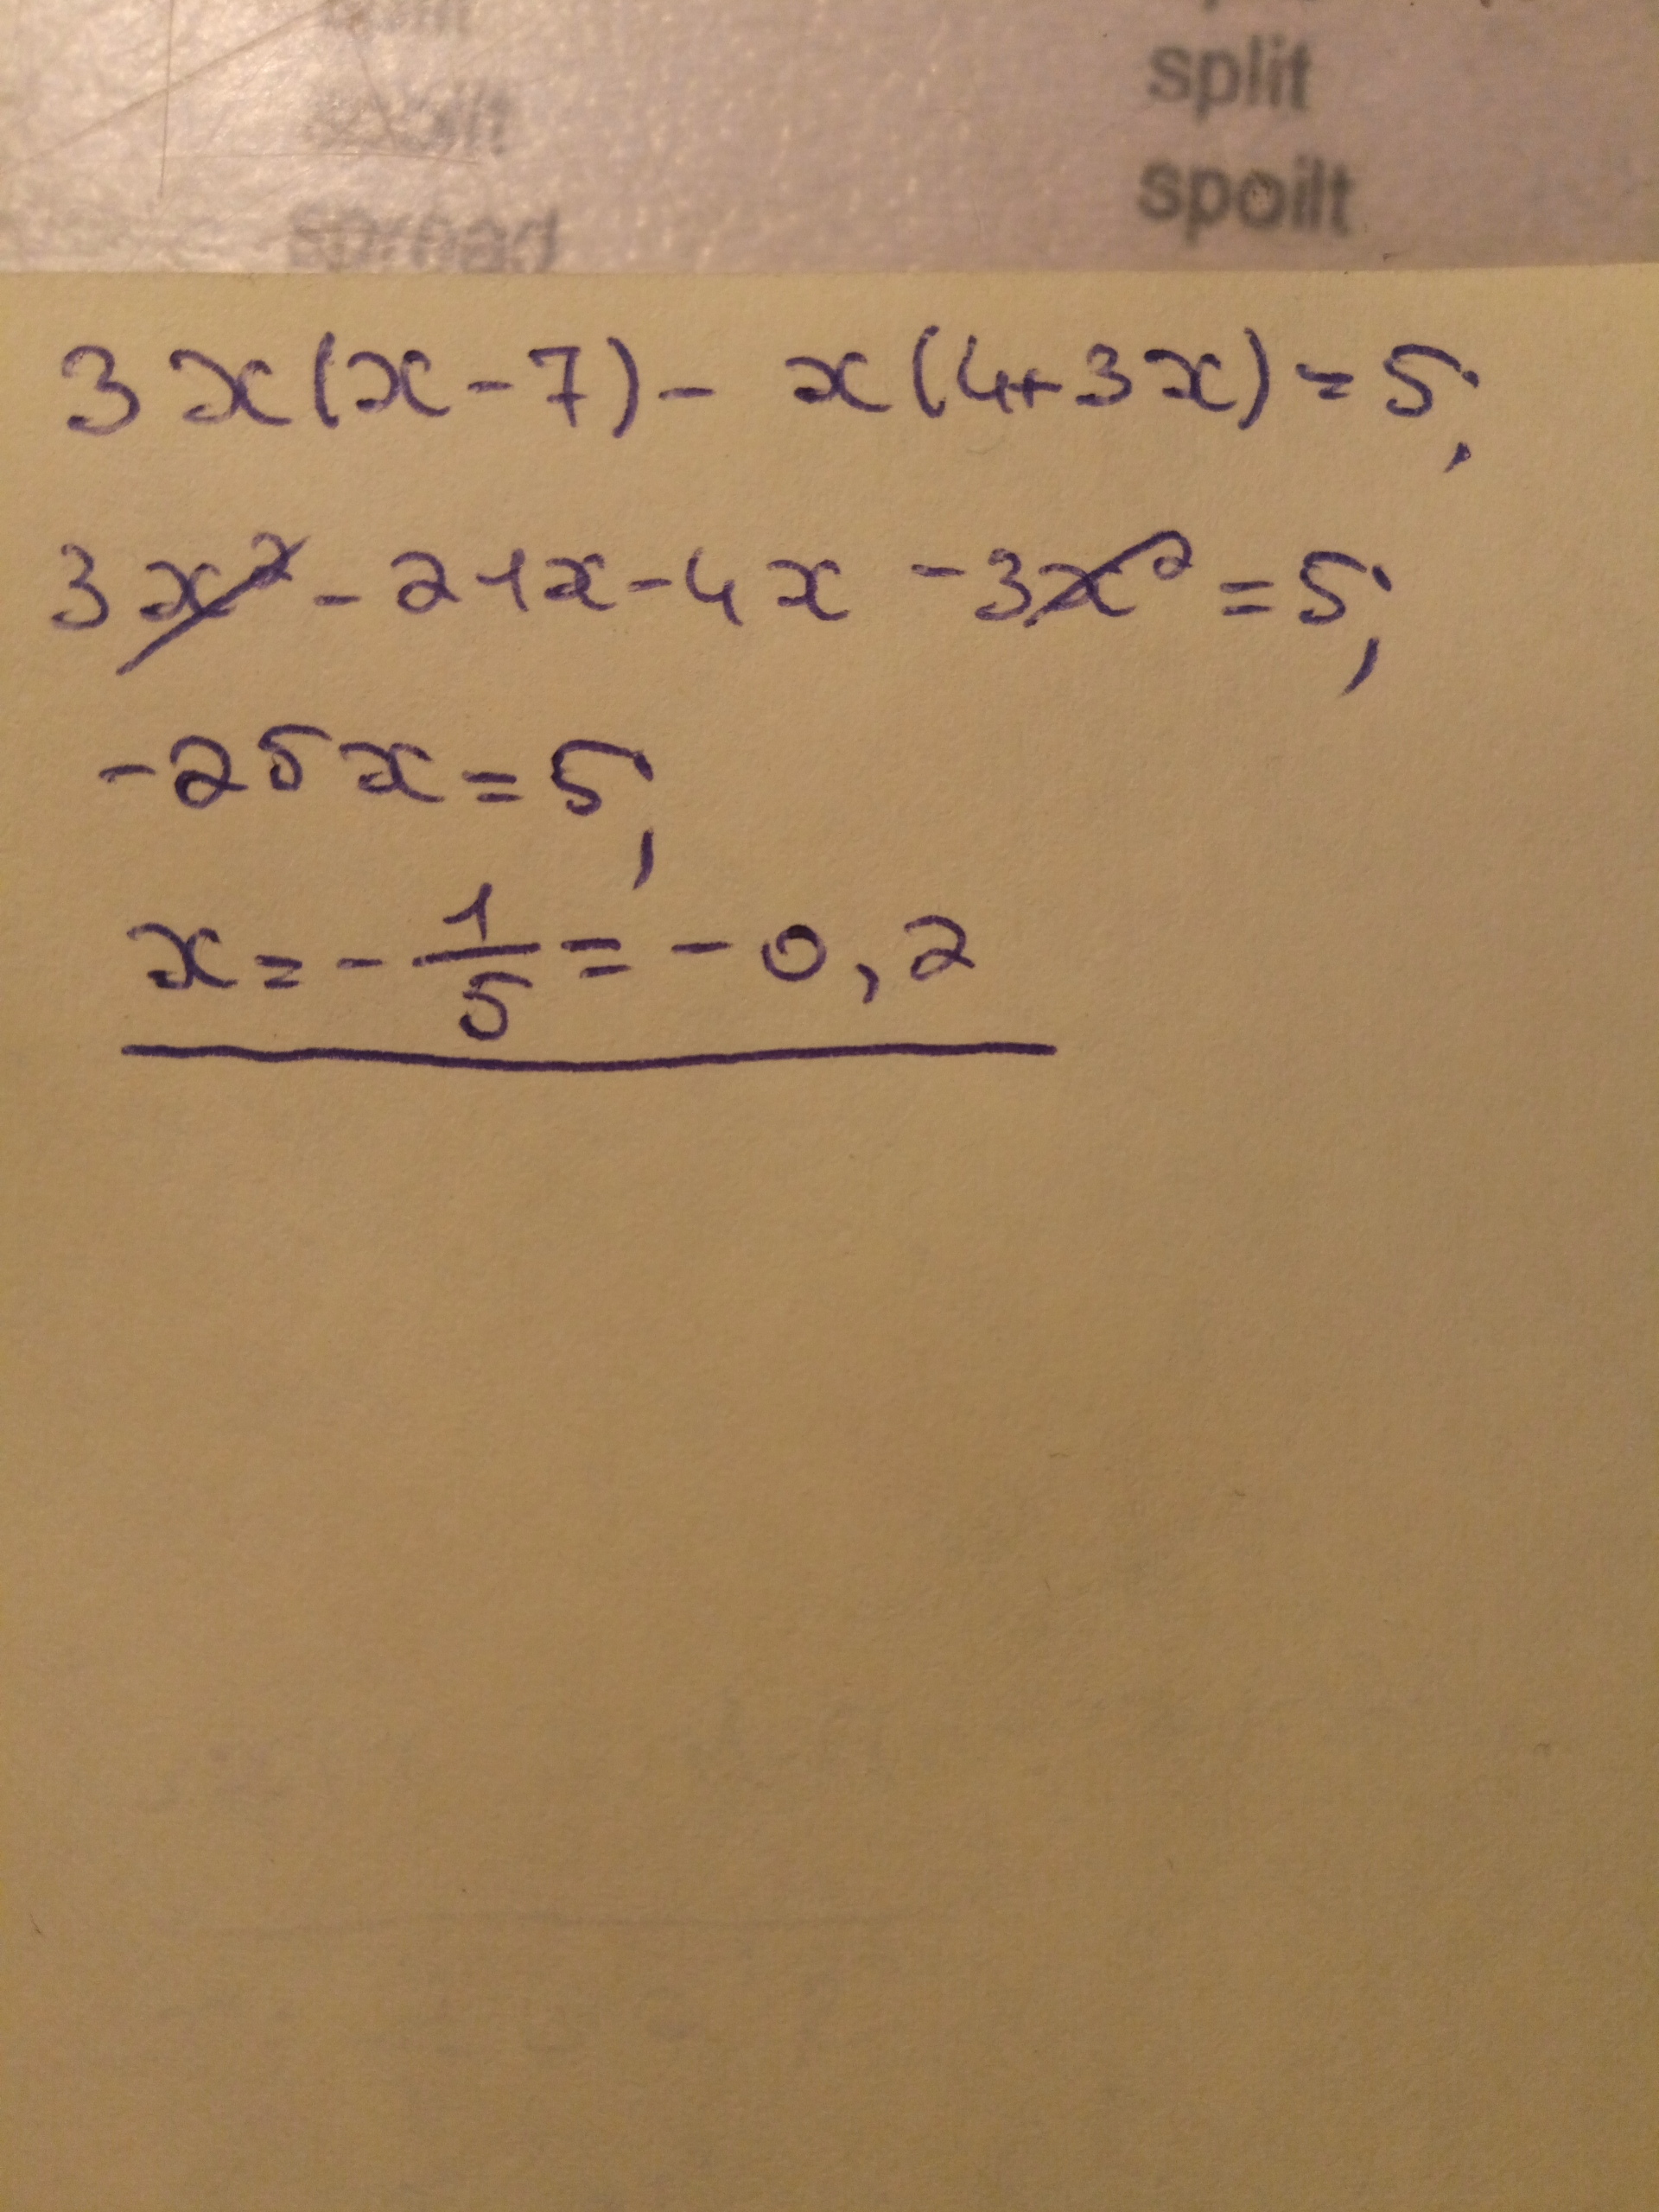 split
spoilt
3x(x-7)- x(4+3x)=5;
3x²-21x-4x-3x²=5;
-25x=5;
x=-1/5=-0,2